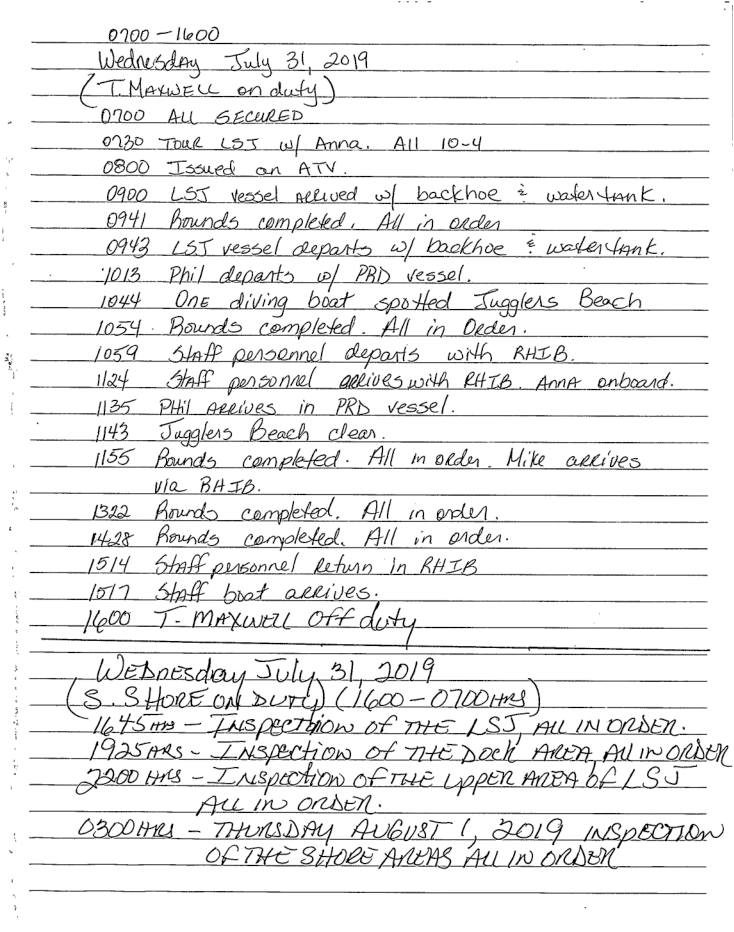 0700 - 1600
Wednesday July 31, 2019
(T. Maxwell on duty)
0700 All SECURED
0730 Tour LSJ w/ Anna. All 10-4
0800 Issued an ATV.
0900 LSJ vessel arrived w/ backhoe & water tank.
0941 Rounds completed. All in order
0943 LSJ vessel departs w/ backhoe & water tank.
1013 Phil departs w/ PRD vessel.
1044 One diving boat spotted Jugglers Beach
1054 Rounds completed. All in Order.
1059 Staff personnel departs with RHIB.
1124 Staff personnel arrives with RHIB. Anna onboard.
1135 Phil Arrives in PRD vessel.
1143 Jugglers Beach clear.
1155 Rounds completed. All in order. Mike arrives
via RHIB.
1322 Rounds completed. All in order.
1428 Rounds completed. All in order.
1514 Staff personnel Return in RHIB
1517 Staff boat arrives.
1600 T. MAXWELL Off duty
Wednesday July 31, 2019
(S. SHORE ON DUTY) (1600 - 0700 HRS)
1645 HRS - INSPECTION OF THE LSJ, ALL IN ORDER.
1925 HRS - INSPECTION OF THE DOCK AREA, ALL IN ORDER
2200 HRS - INSPECTION OF THE UPPER AREA OF LSJ
ALL IN ORDER.
0300 HRS - THURSDAY AUGUST 1, 2019 INSPECTION
OF THE SHORE AREAS ALL IN ORDER